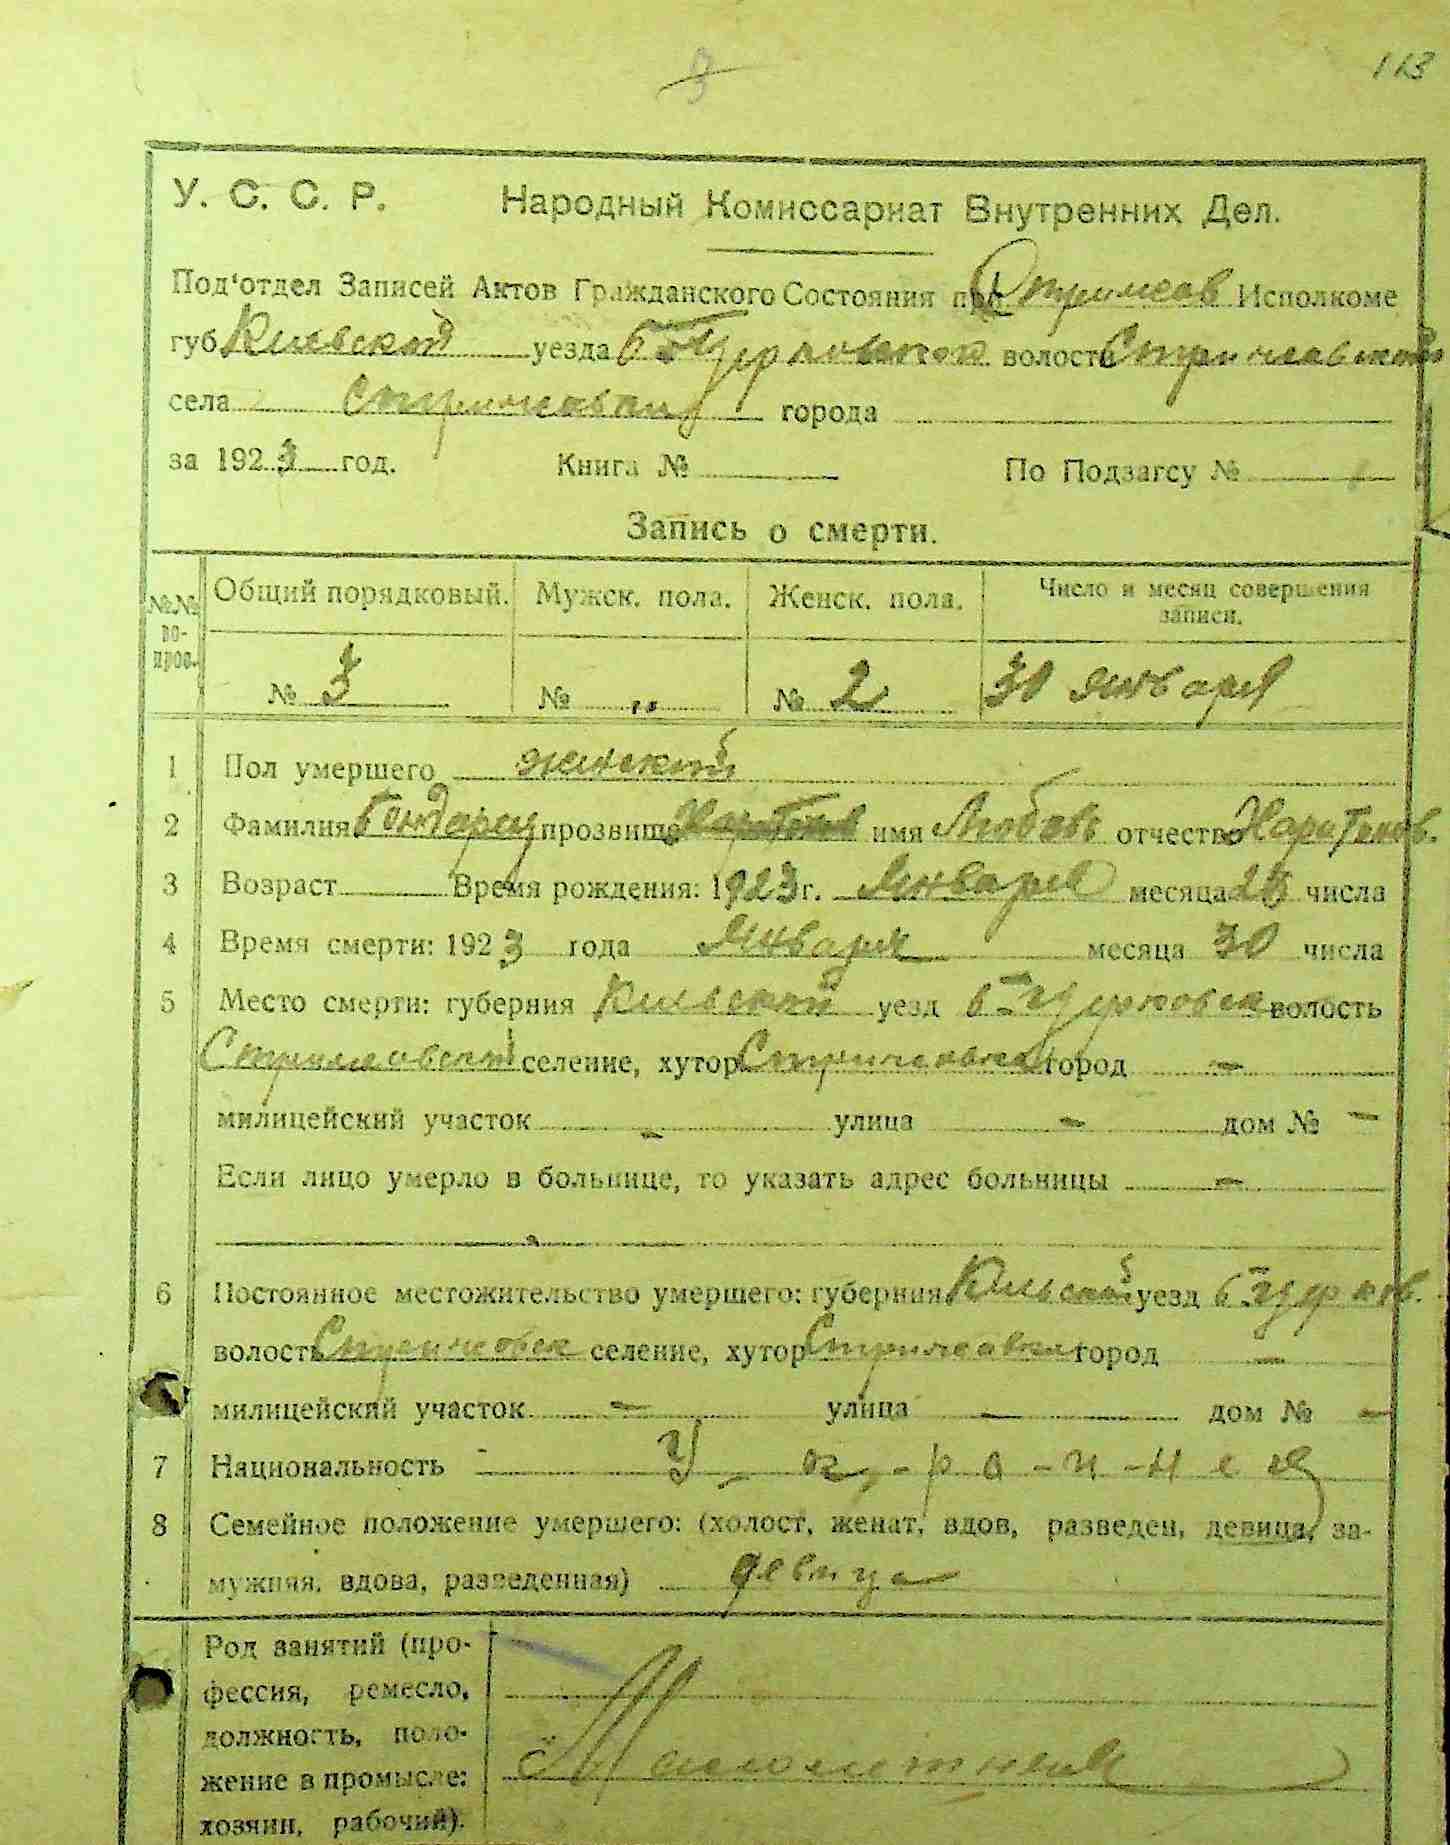 113
3
У. С. С. Р. Народный Комиссариат Внутренних Дел.
Под'отдел Записей Актов Гражданского Состояния при Стрижав Исполкоме
губ Киевской уезда волости Стрижавской
села Стрижавки города
за 1923 год. Книга № По Подзагсу №
Запись о смерти.
№№ во-прос. Общий порядковый. Мужск. пола. Женск. пола. Число и месяц совершения записи.
№ 3 № „ № 2 30 января
1 Пол умершего женский
2 Фамилия Бондарец прозвище имя Любовь отчество Харитонов.
3 Возраст Время рождения: 1923 г. Января месяца числа
4 Время смерти: 1923 года Января месяца 30 числа
5 Место смерти: губерния Киевской уезд волость
селение, хутор Стрижавка город -
милицейский участок - улица - дом № -
Если лицо умерло в больнице, то указать адрес больницы -
6 Постоянное местожительство умершего: губерния Киевской уезд
волость селение, хутор Стрижавка город -
милицейский участок - улица - дом № -
7 Национальность У-к-р-а-и-н-ка
8 Семейное положение умершего: (холост, женат, вдов, разведен, девица, за-
мужняя, вдова, разведенная) девица
Род занятий (про-
фессия, ремесло,
должность, поло-
жение в промысле: Малолетняя
хозяин, рабочий).